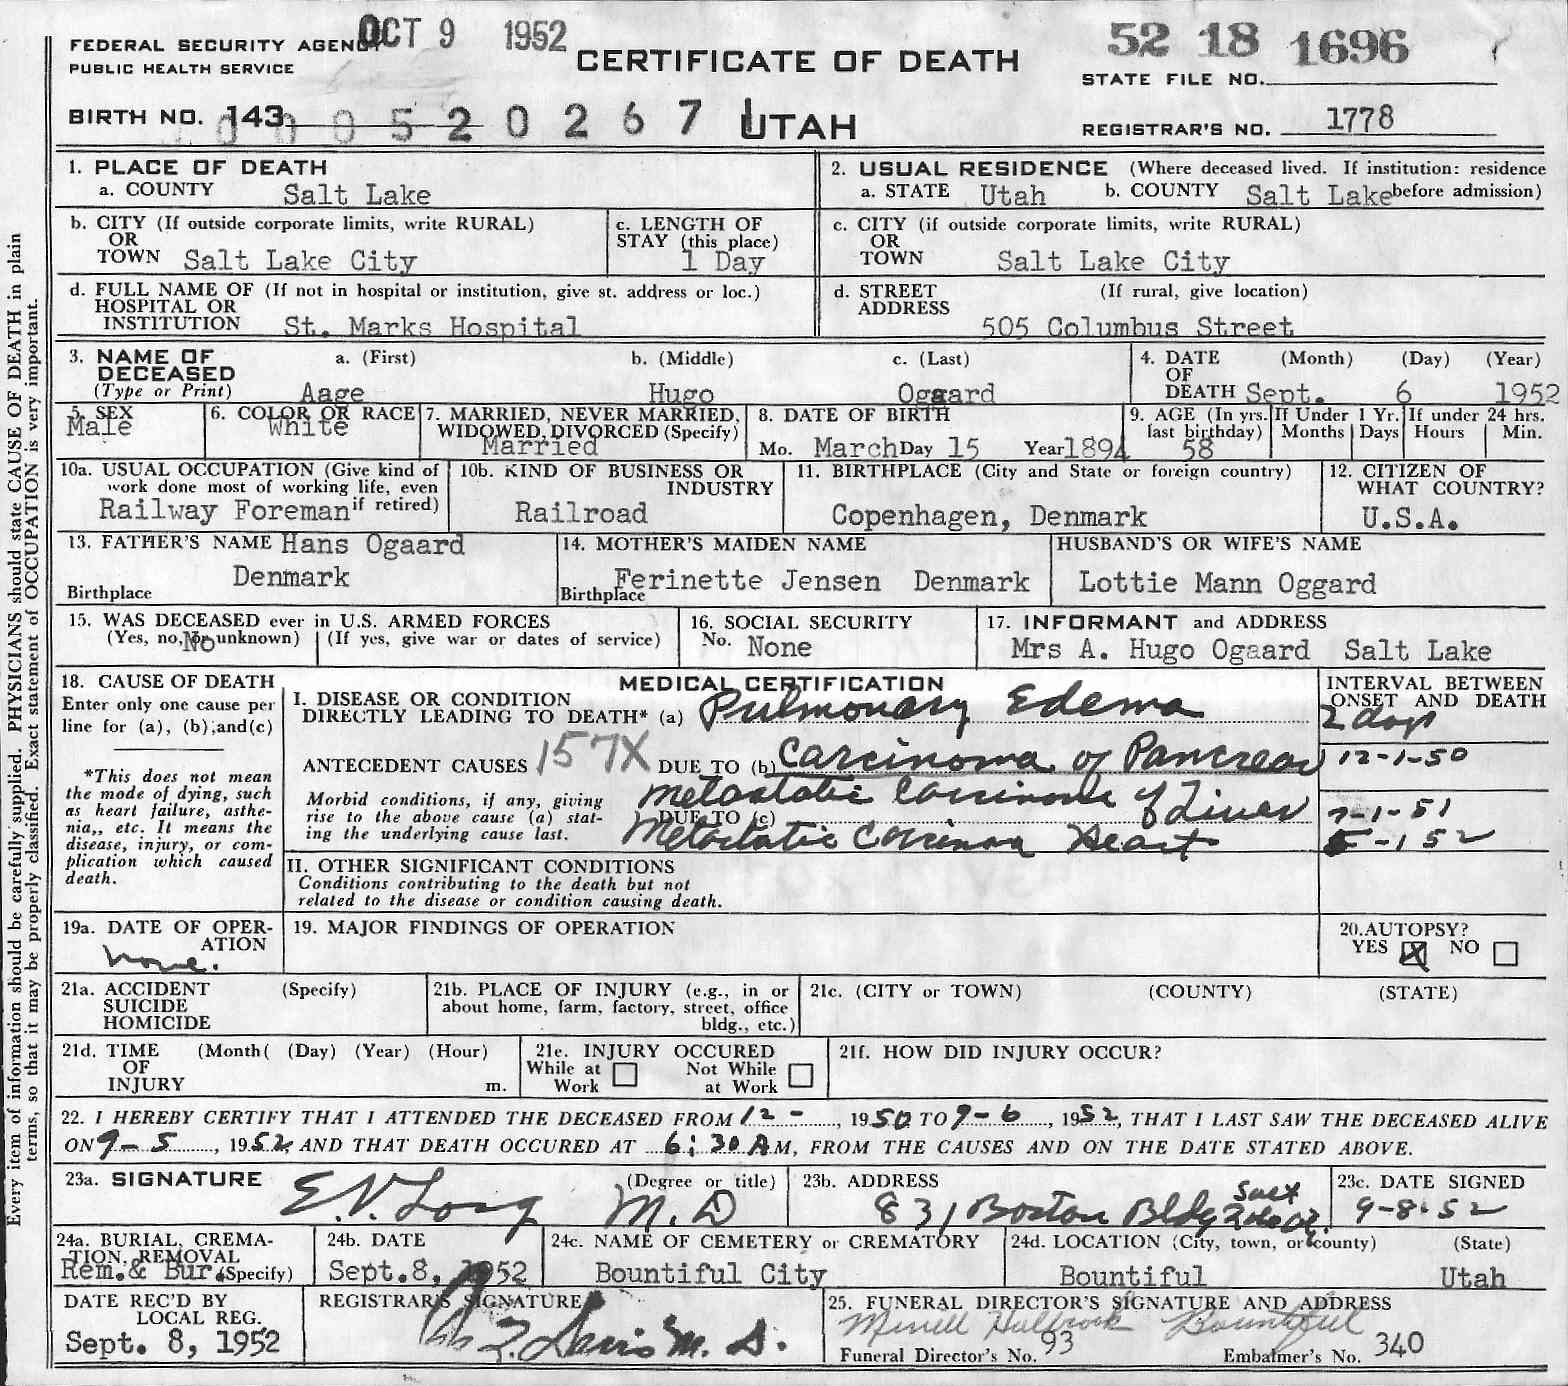 OCT 9 1952
52 18 1696
FEDERAL SECURITY AGENCY
PUBLIC HEALTH SERVICE
CERTIFICATE OF DEATH
STATE FILE NO.
BIRTH NO. 143
0 0 0 5 2 0 2 6 7
UTAH
REGISTRAR'S NO. 1778
1. PLACE OF DEATH
a. COUNTY Salt Lake
2. USUAL RESIDENCE (Where deceased lived. If institution: residence before admission)
a. STATE Utah b. COUNTY Salt Lake
b. CITY (If outside corporate limits, write RURAL)
OR
TOWN Salt Lake City
c. LENGTH OF
STAY (this place)
1 Day
c. CITY (if outside corporate limits, write RURAL)
OR
TOWN Salt Lake City
d. FULL NAME OF (If not in hospital or institution, give st. address or loc.)
HOSPITAL OR
INSTITUTION St. Marks Hospital
d. STREET (If rural, give location)
ADDRESS
505 Columbus Street
3. NAME OF DECEASED
(Type or Print)
a. (First) b. (Middle) c. (Last)
Aage Hugo Ogaard
4. DATE (Month) (Day) (Year)
OF
DEATH Sept. 6 1952
5. SEX
Male
6. COLOR OR RACE
White
7. MARRIED, NEVER MARRIED,
WIDOWED, DIVORCED (Specify)
Married
8. DATE OF BIRTH
Mo. March Day 15 Year 1894
9. AGE (In yrs.
last birthday)
58
If Under 1 Yr.
Months Days
If under 24 hrs.
Hours Min.
10a. USUAL OCCUPATION (Give kind of
work done most of working life, even
if retired)
Railway Foreman
10b. KIND OF BUSINESS OR
INDUSTRY
Railroad
11. BIRTHPLACE (City and State or foreign country)
Copenhagen, Denmark
12. CITIZEN OF
WHAT COUNTRY?
U.S.A.
13. FATHER'S NAME Hans Ogaard
Birthplace Denmark
14. MOTHER'S MAIDEN NAME
Ferinette Jensen Denmark
Birthplace
HUSBAND'S OR WIFE'S NAME
Lottie Mann Oggard
15. WAS DECEASED ever in U.S. ARMED FORCES
(Yes, no, or unknown) (If yes, give war or dates of service)
No
16. SOCIAL SECURITY
No. None
17. INFORMANT and ADDRESS
Mrs A. Hugo Ogaard Salt Lake
18. CAUSE OF DEATH
Enter only one cause per
line for (a), (b), and (c)
*This does not mean
the mode of dying, such
as heart failure, asthe-
nia,, etc. It means the
disease, injury, or com-
plication which caused
death.
MEDICAL CERTIFICATION
I. DISEASE OR CONDITION
DIRECTLY LEADING TO DEATH* (a) Pulmonary Edema
157X
ANTECEDENT CAUSES DUE TO (b) Carcinoma of Pancreas
Morbid conditions, if any, giving
rise to the above cause (a) stat-
ing the underlying cause last.
DUE TO (c) Metastatic Carcinoma of Liver
Metastatic Carcinoma Heart
INTERVAL BETWEEN
ONSET AND DEATH
2 days
12-1-50
7-1-51
5-1 52
II. OTHER SIGNIFICANT CONDITIONS
Conditions contributing to the death but not
related to the disease or condition causing death.
19a. DATE OF OPER-
ATION
none.
19. MAJOR FINDINGS OF OPERATION
20. AUTOPSY?
YES X NO
21a. ACCIDENT (Specify)
SUICIDE
HOMICIDE
21b. PLACE OF INJURY (e.g., in or
about home, farm, factory, street, office
bldg., etc.)
21c. (CITY or TOWN) (COUNTY) (STATE)
21d. TIME (Month( (Day) (Year) (Hour)
OF
INJURY m.
21e. INJURY OCCURED
While at Work Not While at Work
21f. HOW DID INJURY OCCUR?
22. I HEREBY CERTIFY THAT I ATTENDED THE DECEASED FROM 12 - , 1950 TO 9-6 , 1952, THAT I LAST SAW THE DECEASED ALIVE
ON 9-5 , 1952, AND THAT DEATH OCCURED AT 6:30 AM, FROM THE CAUSES AND ON THE DATE STATED ABOVE.
23a. SIGNATURE (Degree or title)
E.V. Long M.D
23b. ADDRESS
831 Boston Bldg Salt
23c. DATE SIGNED
9-8-52
24a. BURIAL, CREMA-
TION, REMOVAL
(Specify)
Rem.& Bur.
24b. DATE
Sept.8, 1952
24c. NAME OF CEMETERY OR CREMATORY
Bountiful City
24d. LOCATION (City, town, or county) (State)
Bountiful Utah
DATE REC'D BY
LOCAL REG.
Sept. 8, 1952
REGISTRAR'S SIGNATURE
M. D.
25. FUNERAL DIRECTOR'S SIGNATURE AND ADDRESS
Merrell Holbrook Bountiful
Funeral Director's No. 93 Embalmer's No. 340
Every item of information should be carefully supplied. PHYSICIANS should state CAUSE OF DEATH in plain
terms, so that it may be properly classified. Exact statement of OCCUPATION is very important.